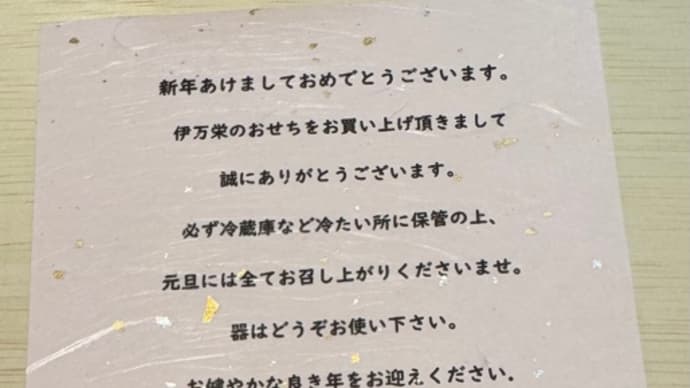 新年あけましておめでとうございます。
伊万栄のおせちをお買い上げ頂きまして
誠にありがとうございます。
必ず冷蔵庫など冷たい所に保管の上、
元旦には全てお召し上がりくださいませ。
器はどうぞお使い下さい。
お健やかな良き年をお迎えください。